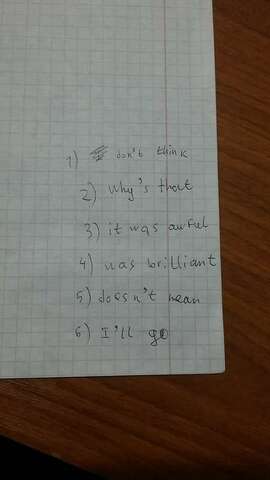 1) don't think
2) why's that
3) it was awful
4) was brilliant
5) doesn't mean
6) I'll go